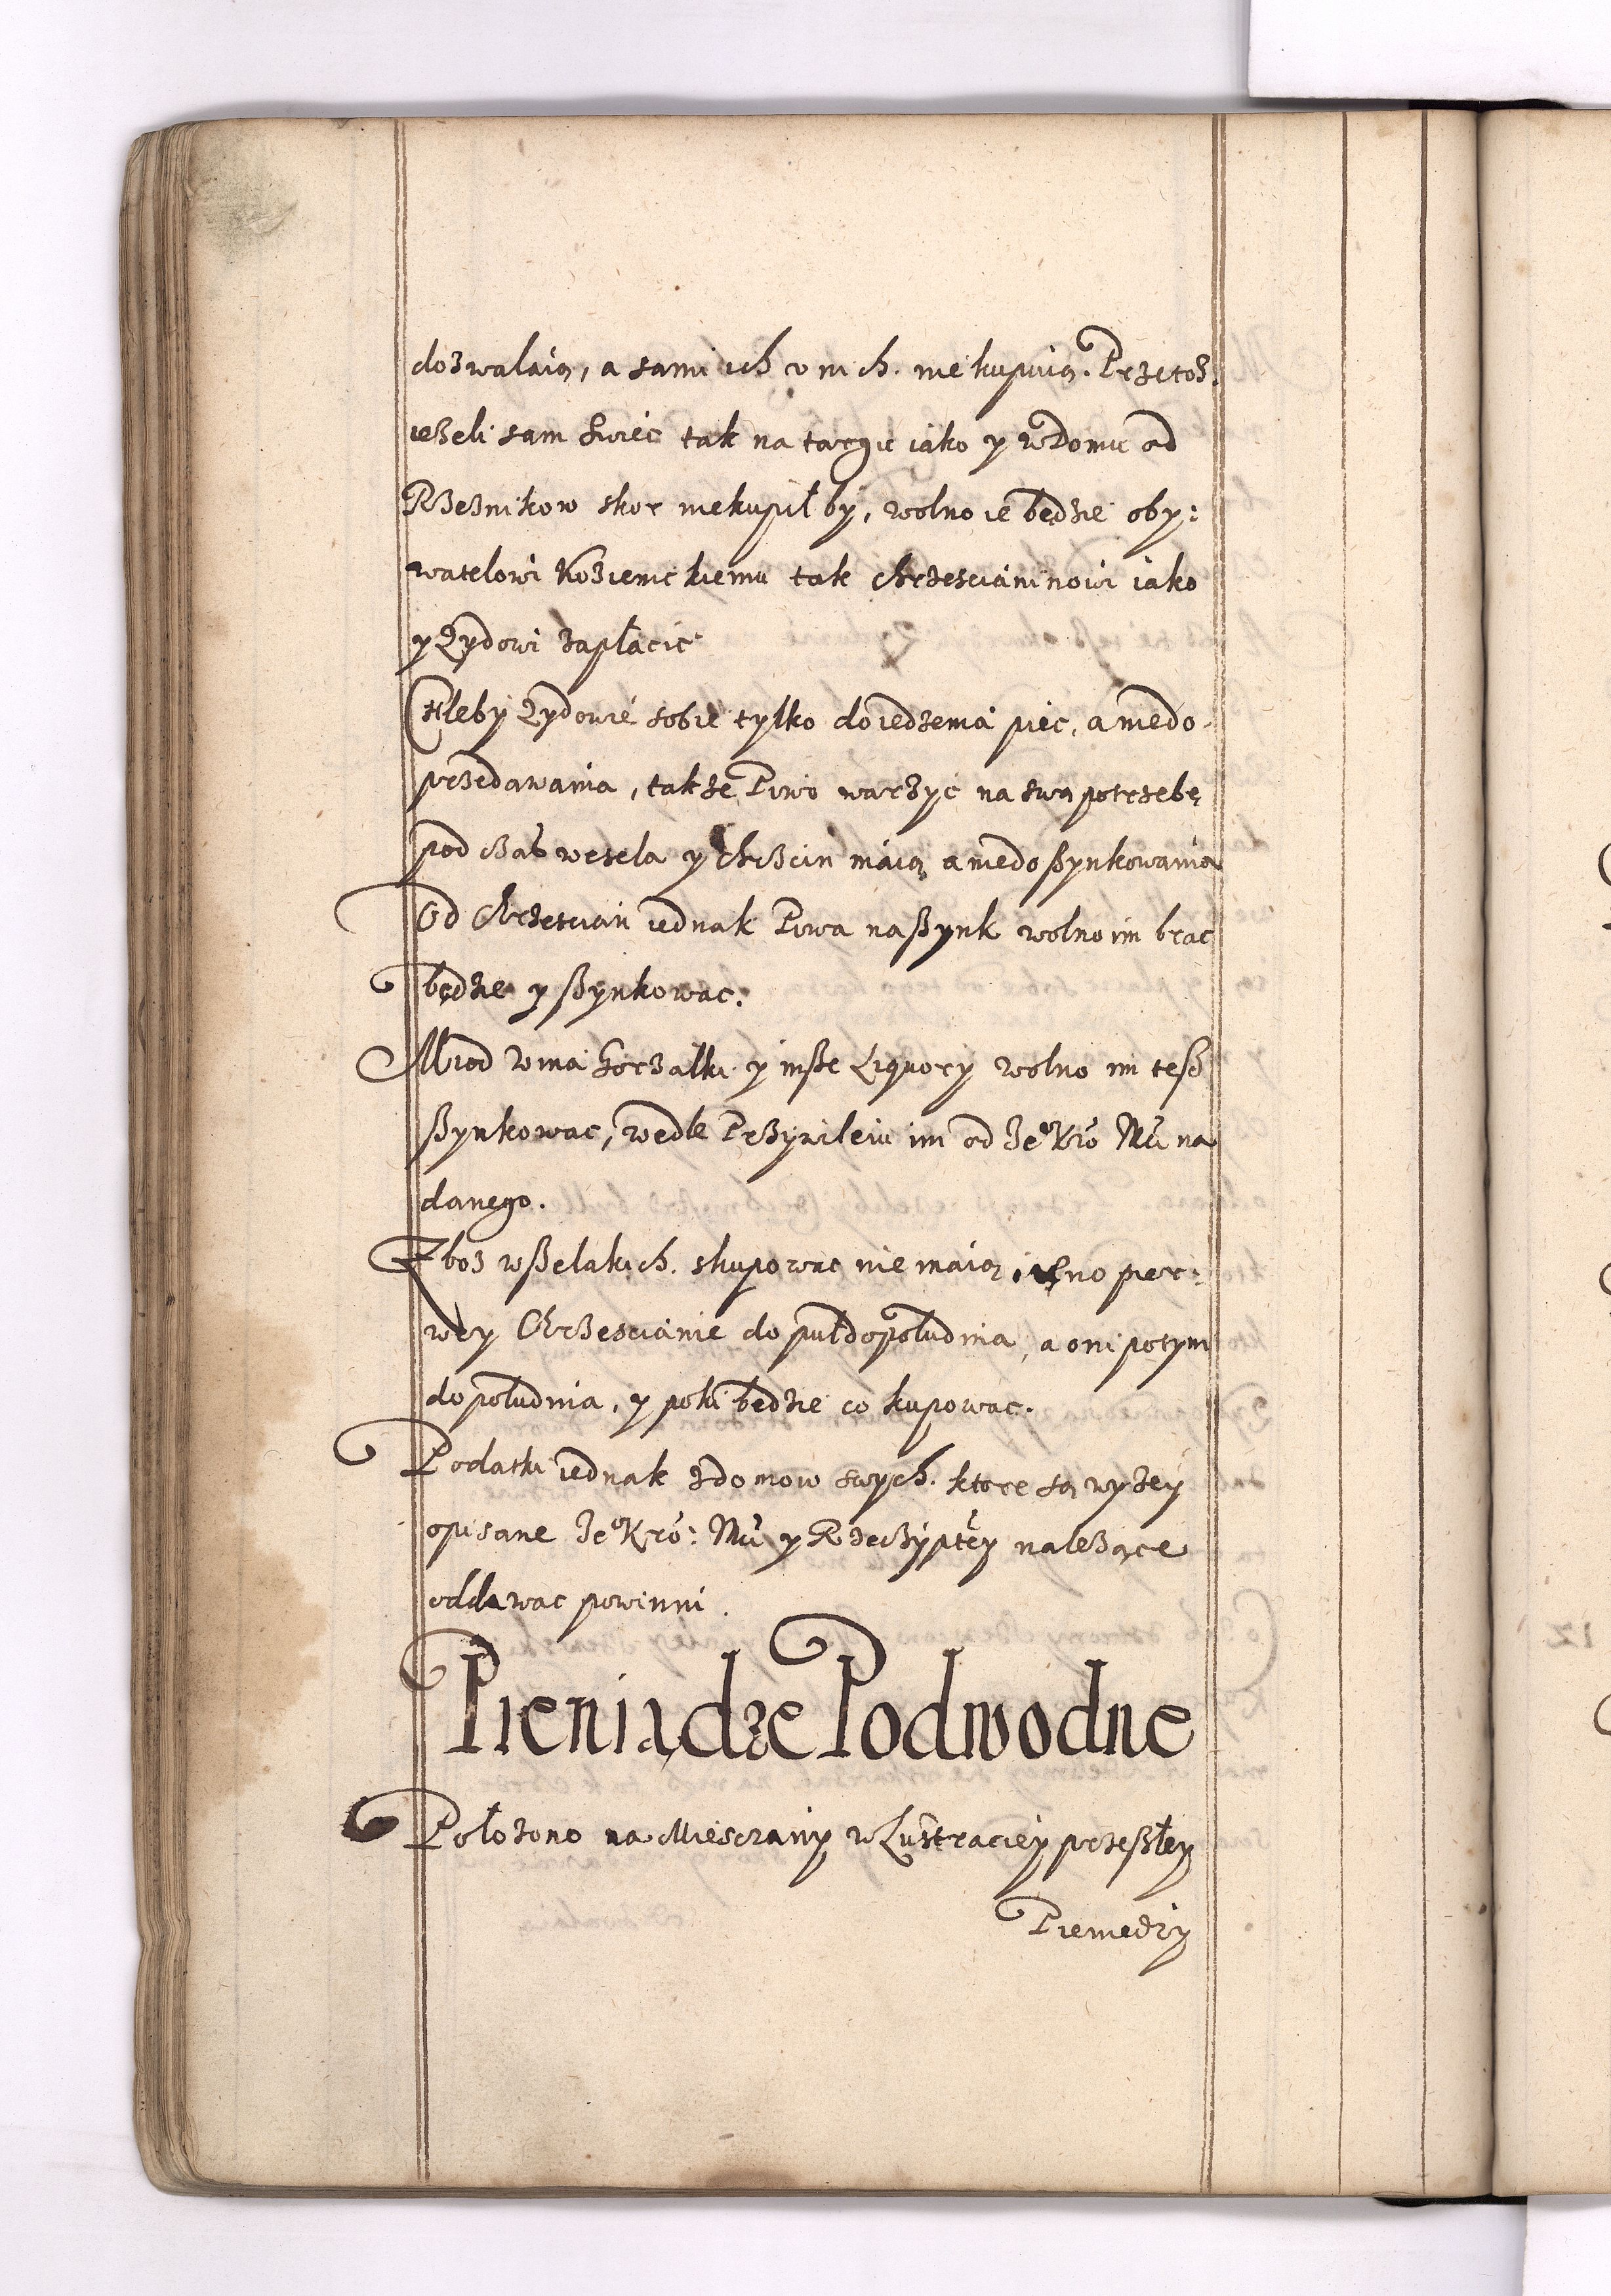 dozwalaią, a sami ich v nich. niekupuią. Przetoż.
ieżeli sam Swiec tak na targu iako y w Domu od
Rzeznikow skor niekupiłby, wolno ie będzie oby:
watelowi Kozienickiemu tak chrzescianinowi iako
y Zydowi zapłacić
Chleby Zydowie sobie tylko do iedzenia piec, a niedo
przedawania, także Piwo warzyć na swą potrzebę
pod czas wesela y chrzcin maią a niedo szynkowania
Od Chrzescian iednak Piwa na szynk wolno im brac
będzie y szynkowac.
Miod Wina Gorzałki y insze Liquory wolno im tesz
szynkowac, wedle Przywileiu im od Je° Kró Mći na
danego.
Zboz wszelakich. skupowac nie maią, ieno pier:
wey Chrzescianie do puł dopołudnia, a oni potym
do południa, y poki będzie co kupowac.
Podatki iednak z domow swych. ktore są wyżey
opisane Je° Kró: Mći y Rzeczyptey należące
oddawac powinni.
Pieniądze Podwodne
Położono na Miesczany w Lustraciey przeszłey
Pieniedzy